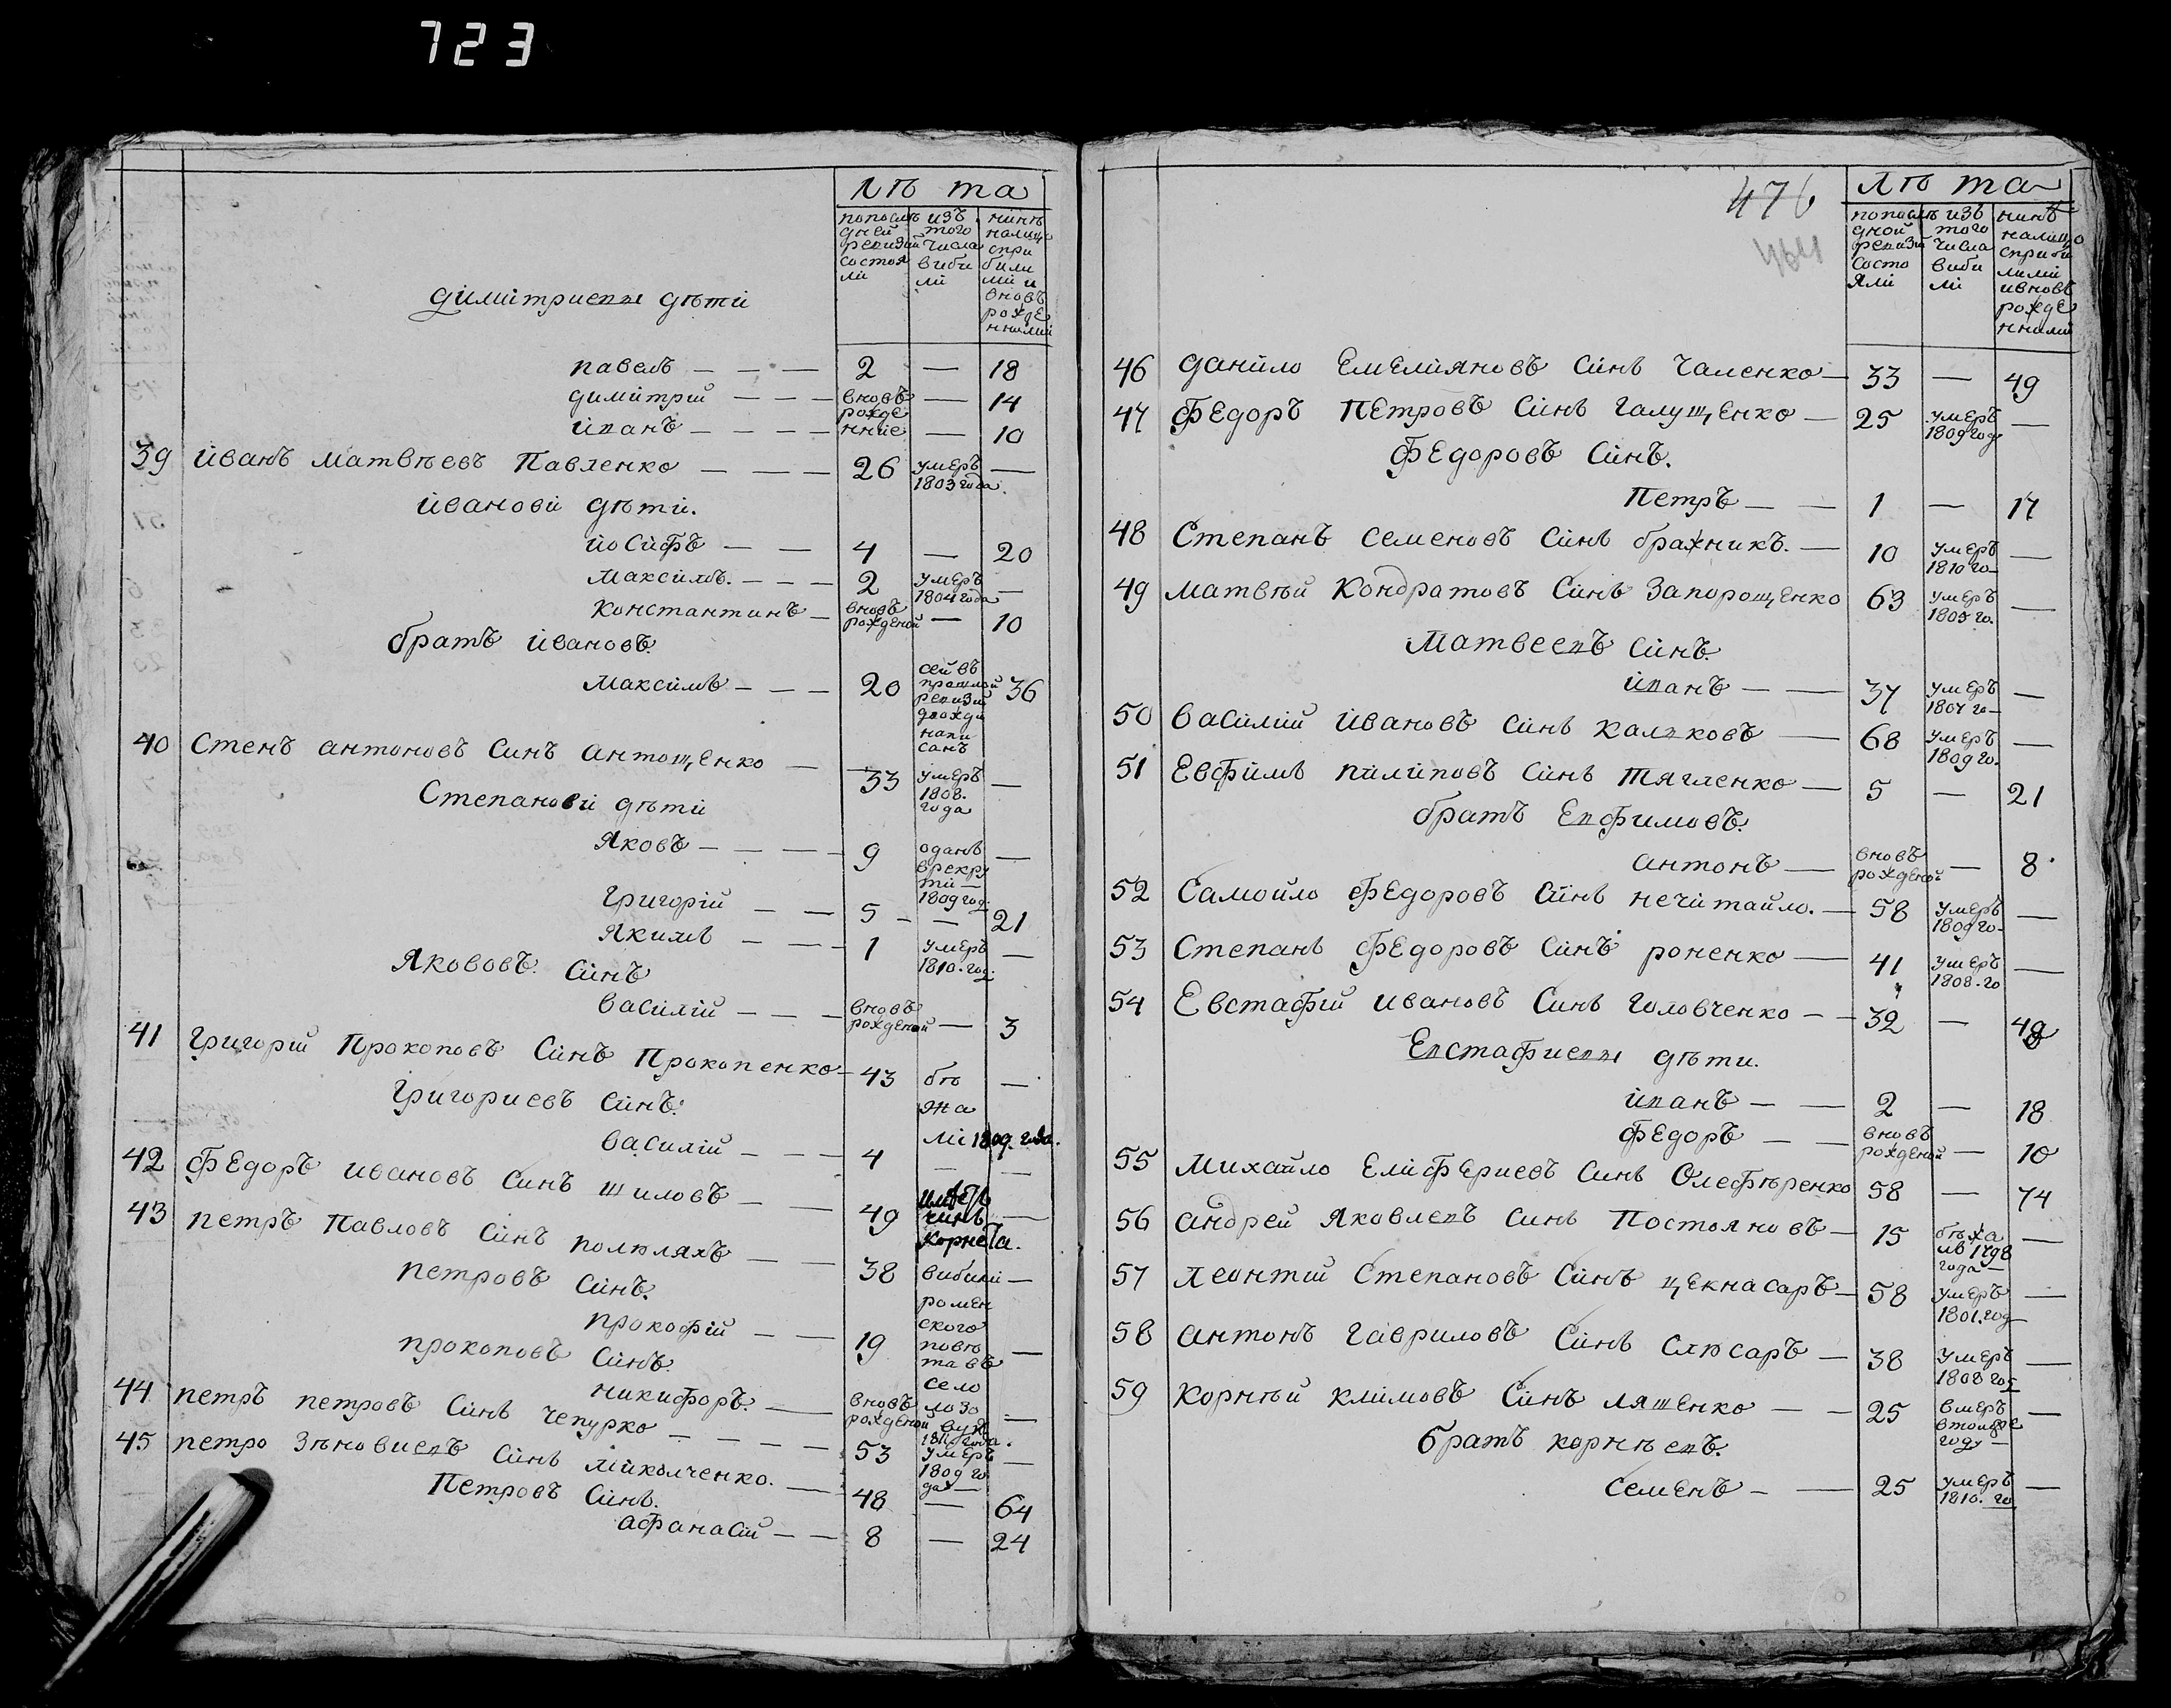 723
лѣта
попослѣдней ревизій состояли
изъ того числа вибили
нинѣ налицо сприбилими и вновь рожденними
димитриеви дѣти
павелъ — — — 2 — 18
димитрій — — — вновь рожденніе — 14
иванъ — — — — 10
39 иванъ матвѣевъ Павленко — — — 26 умеръ 1803 года —
иванови дѣти.
иосифъ — — 4 — 20
максимъ. — — — 2 умеръ 1804 года —
константинъ — вновь рожденой — 10
братъ ивановъ.
максимъ — — — 20 сей въ прошлой ревизій дважди написанъ 36
40 Стенъ антоновъ Синъ антощенко — 33 умеръ 1808. года —
Степанови дѣти
Яковъ — — — — 9 оданъ врекрути — 1809 год. —
Григорій — — 5 — — 21
Якимъ — — — 1 умеръ 1810. год. —
Якововъ Синъ
василій — — — вновь рожденой — 3
41 Григорій Прокоповъ Синъ Прокопенко — 43 бѣжали 1809. года. —
Григориевъ Синъ.
василій — — — 4 — —
42 ФЕдоръ ивановъ Синъ шиловъ — — 49 имѣетъ чинъ корнета. —
43 петръ Павловъ Синъ полюляхъ — — 38 вибили роменского повѣта въ село 1811. года. —
петровъ Синъ.
прокофій — — 19 —
прокоповъ Синъ.
никифоръ. — вновь рожденой —
44 петръ петровъ Синъ Чепурко — — — — 53 умеръ 1809 года —
45 петро Зѣновиевъ Синъ мійколченко. — 48 — 64
Петровъ Синъ.
афанасій — — 8 — 24
476
464
лѣта
попослѣдной ревизій состояли
изъ того числа вибили
нинѣ налицо сприбилими ивновь рожденними
46 данило Емелияновъ Синъ Чаленко — 33 — 49
47 ФЕдоръ ПЕтровъ Синъ Галущенко — 25 умеръ 1809 году —
ФЕдоровъ Синъ.
Петръ — — 1 — 17
48 Степанъ семеновъ Синъ бражникъ. — 10 умеръ 1810 го — —
49 матвѣй Кондратовъ Синъ Запорощенко 63 умеръ 1805 го. —
Матвеевъ Синъ.
иванъ — — 37 умеръ 1807 го — —
50 василий ивановъ Синъ калковъ — 68 умеръ 1809 го. —
51 Евфимъ пилиповъ Синъ тягленко — 5 — 21
братъ Евфимовъ.
антонъ — вновь рожденой — 8
52 Самойло ФЕдоровъ Синъ нечитайло. — 58 умеръ 1809 го — —
53 Степанъ ФЕдоровъ Синъ роненко — 41 умеръ 1808. го —
54 Евстафий ивановъ Синъ Головченко — — 32 — 48
Евстафиеви дѣти.
иванъ — — 2 — 18
ФЕдоръ — — вновь рожденой — 10
55 Михайло Елиферневъ Синъ Олефѣренко 58 — 74
56 андрей Яковлевъ Синъ Постояновъ — 15 бѣжалъ 1798 года — —
57 Леонтий Степановъ Синъ цЕкнасаръ — 58 умеръ 1801. год —
58 антонъ Гавриловъ Синъ Слюсаръ — 38 умеръ 1808 го —
59 корнѣй климовъ Синъ ляшенко — — 25 вмеръ втомже году — —
братъ корнѣевъ.
семенъ — — 25 умеръ 1810. го —